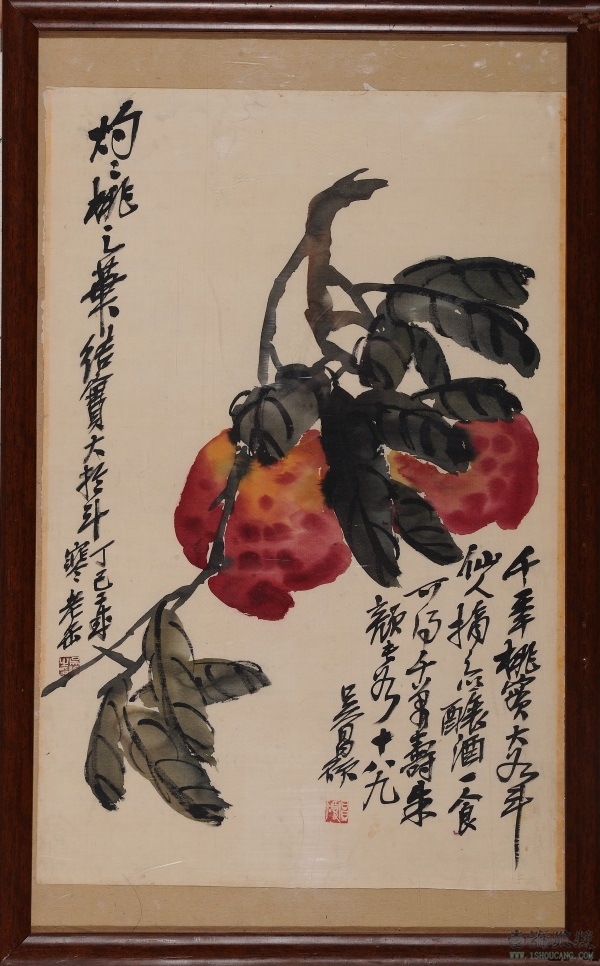 千秊桃實大如斗
仙人摘之以釀酒一食
可得千萬壽朱
顏長如十八九
吳昌碩
灼〻桃之華結實大於斗丁巳
老缶
WWW.1SHOUCANG.COM